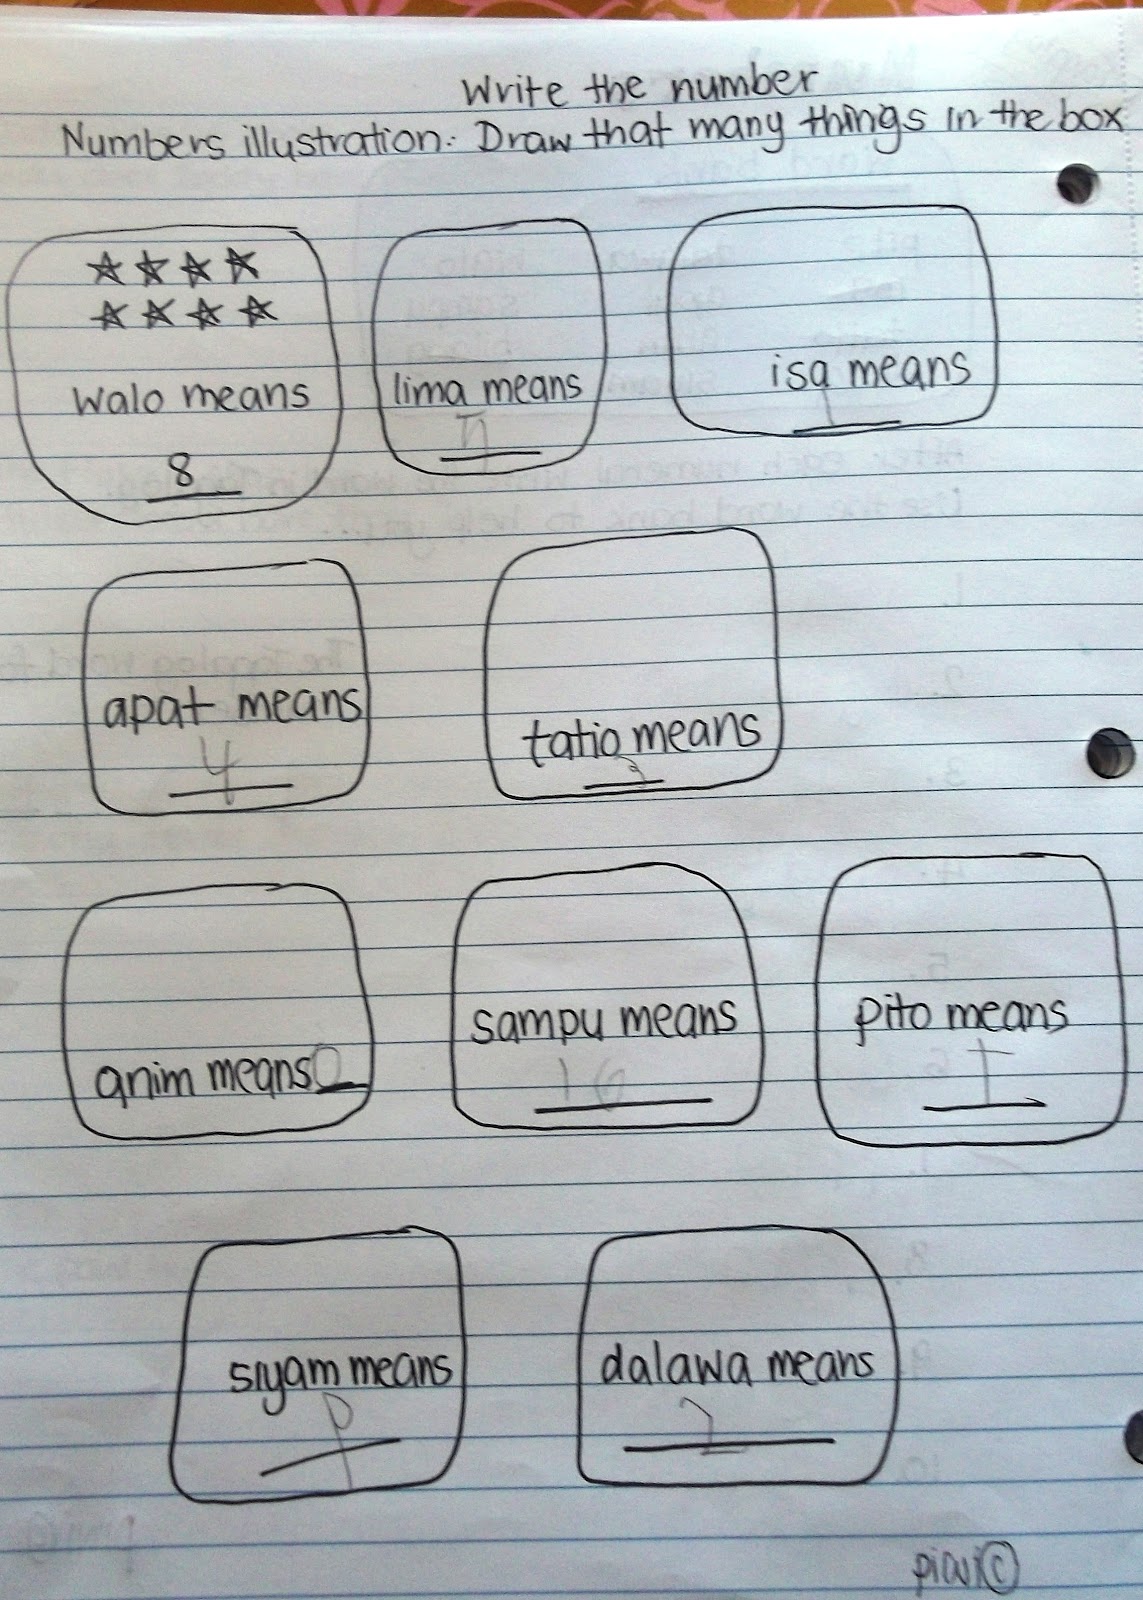 Write the number
Numbers illustration: Draw that many things in the box
walo means
8
lima means
5
isa means
1
apat means
4
tatlo means
3
anim means
sampu means
10
pito means
siyam means
dalawa means
2